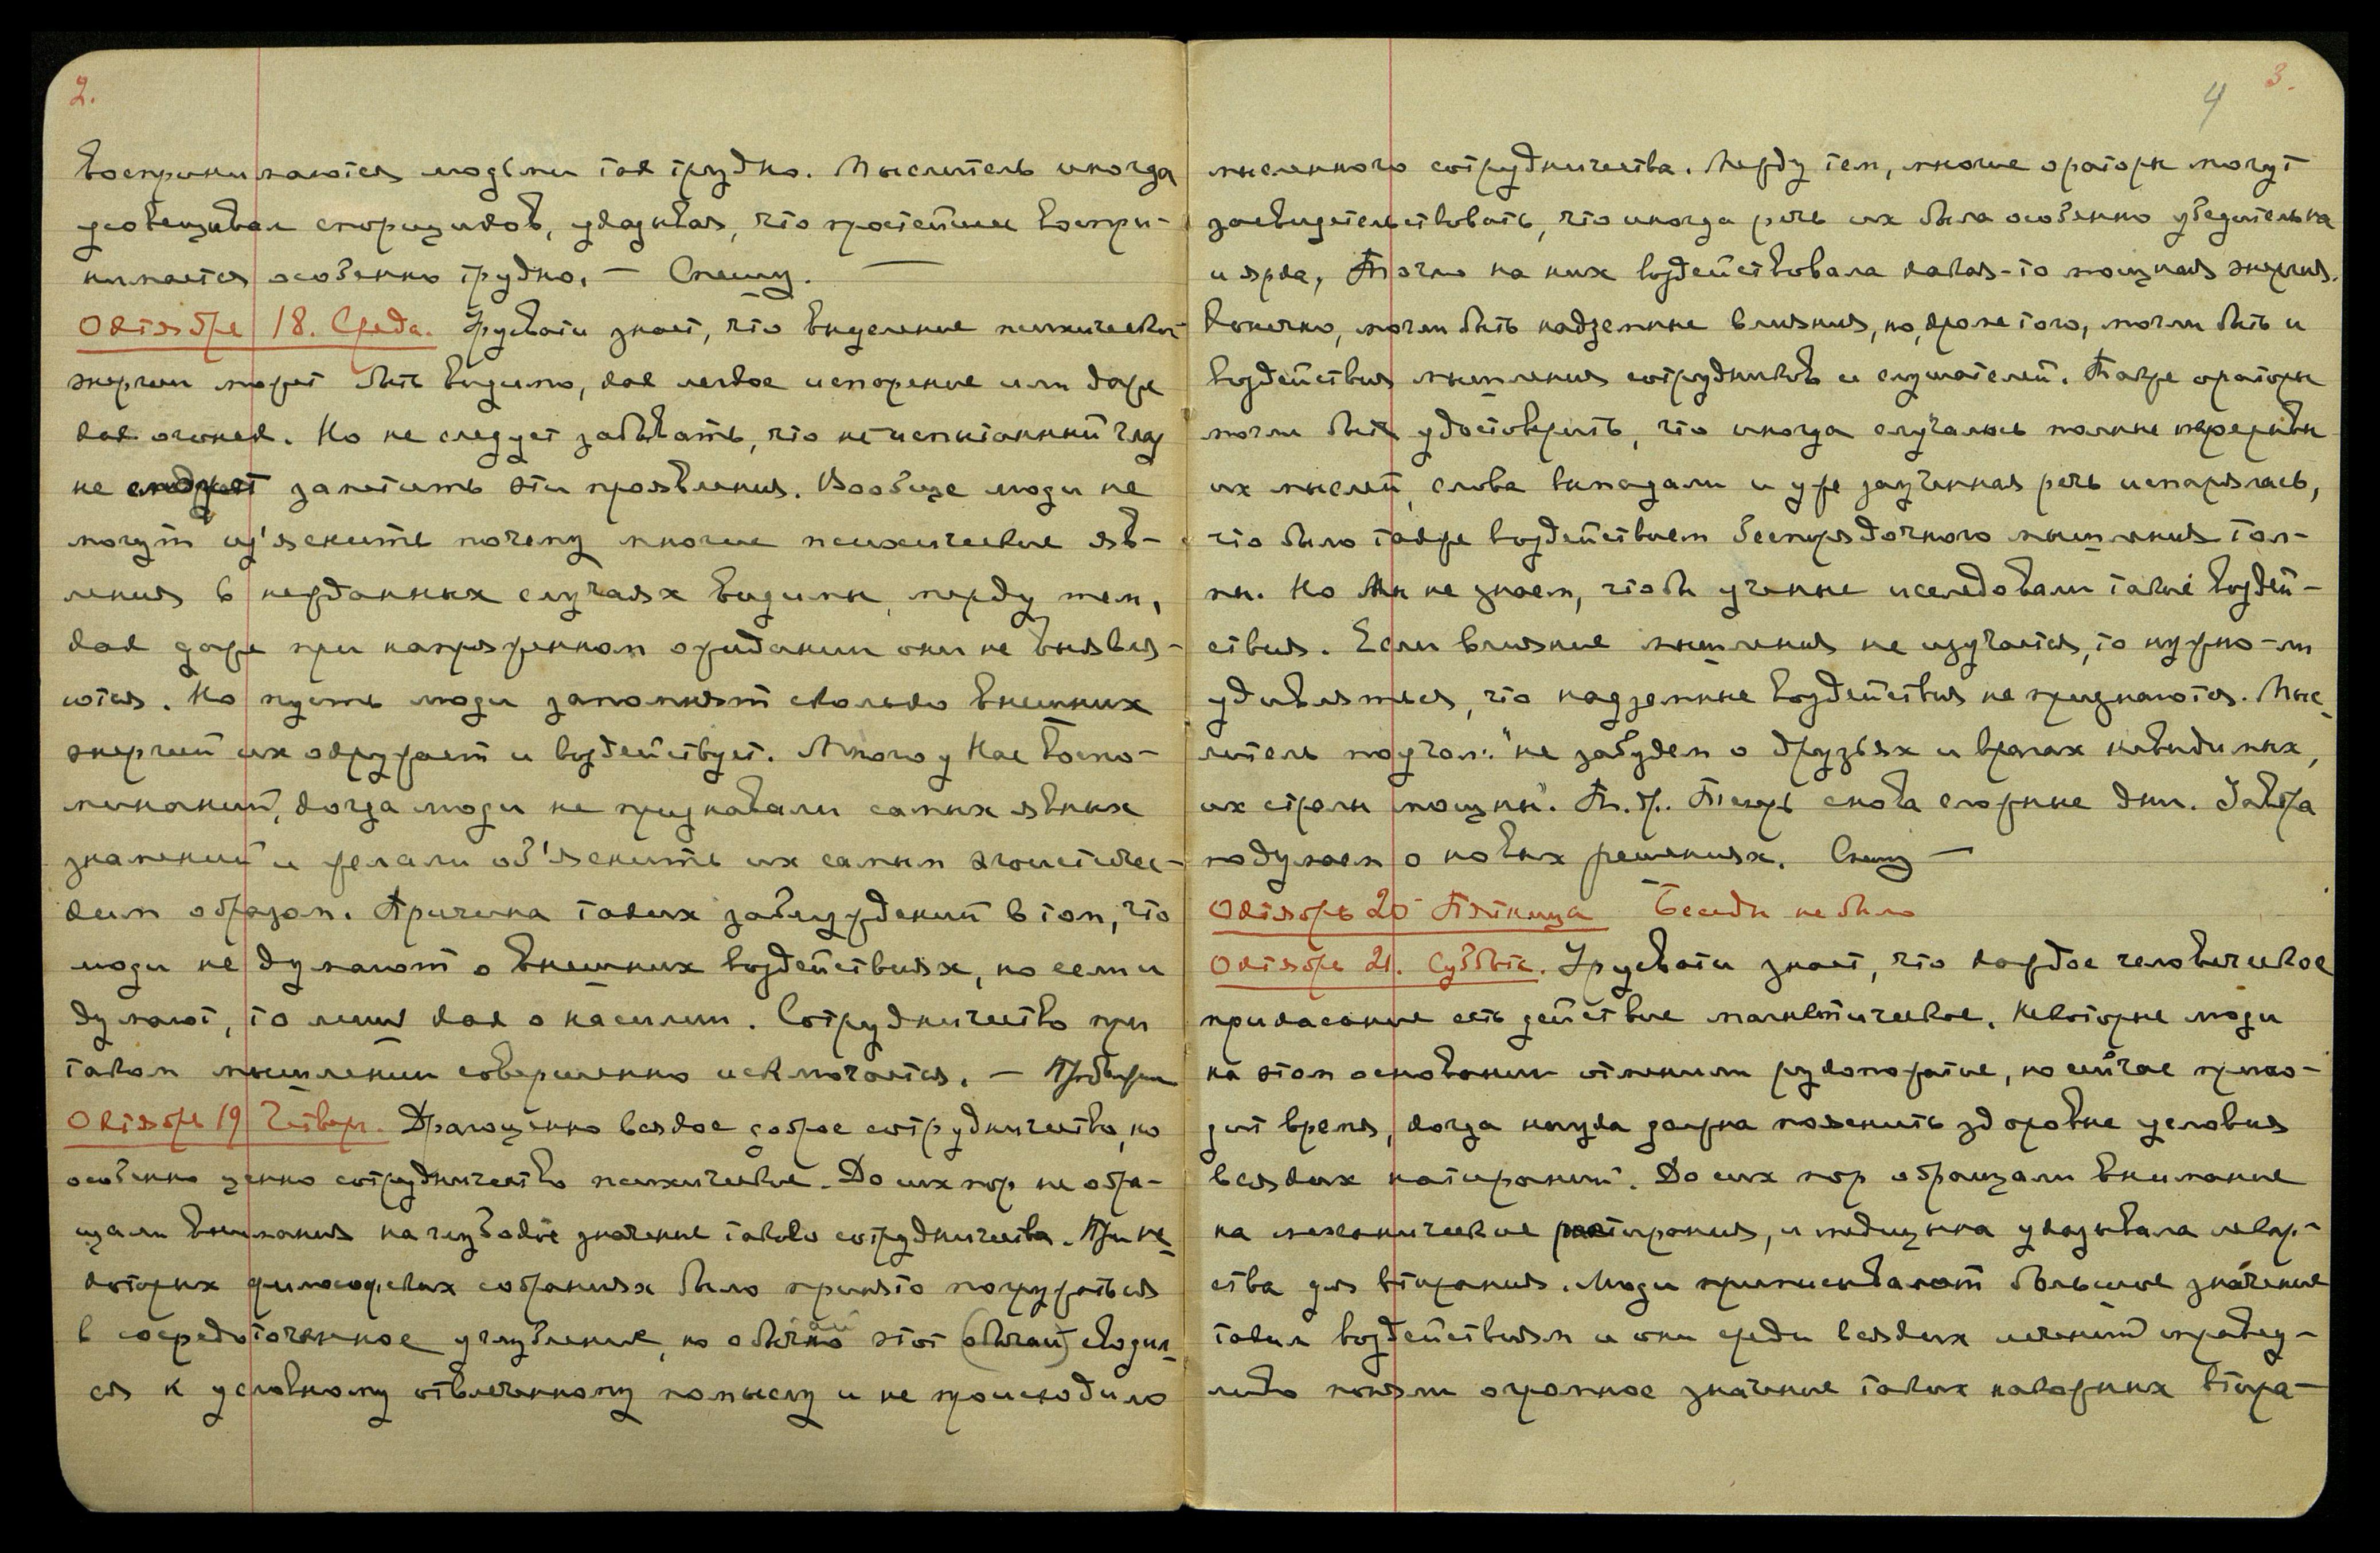 2.
воспринимаются людьми так трудно. Мыслитель иногда
усовещивал спорщиков, указывая, что простейшее воспри-
нимается особенно трудно. — Спешу. —
Октябрь 18. Среда. Урусвати знает, что выделение психической
энергии может быть видимо, как легкое испарение или даже
как огонек. Но не следует забывать, что не испытанный глаз
не сможет заметить эти проявления. Вообще люди не
могут из'яснить почему многие психические яв-
ления в нежданных случаях видимы, между тем,
как даже при напряженном ожидании они не выявля-
ются. Но пусть люди запомнят сколько внешних
энергий их окружает и воздействует. Много у Нас воспо-
минаний, когда люди не признавали самых явных
знамений и желали об'яснить их самым эгоистичес-
ким образом. Причина таких заблуждений в том, что
люди не думают о внешних воздействиях, но если и
думают, то лишь как о насилии. Сотрудничество при
таком мышлении совершенно исключается. —
Октябрь 19 Четверг. Драгоценно всякое доброе сотрудничество, но
особенно ценно сотрудничество психическое. До сих пор не обра-
щали внимания на глубокое значение такого сотрудничества. При не-
которых философских собраниях было принято погружаться
в сосредоточенное углубление, но обычай этот (обычай) сводил-
ся к условному отвлеченному помыслу и не происходило
4 3.
мысленного сотрудничества. Между тем, многие ораторы могут
засвидетельствовать, что иногда речь их была особенно убедительна
и ярка, Точно на них воздействовала какая-то мощная энергия.
Конечно, могли быть надземные влияния, но, кроме того, могли быть и
воздействия мышления сотрудников и слушателей. Также ораторы
могли бы удостоверить, что иногда случались полные перерывы
их мыслей, слова выпадали и уже заученная речь испарялась,
что было также воздействием беспорядочного мышления тол-
пы. Но Мы не знаем, чтобы ученые исследовали такие воздей-
ствия. Если влияние мышления не изучается, то нужно-ли
удивляться, что надземные воздействия не признаются. Мыс-
литель поучал: "не забудем о друзьях и врагах невидимых,
их стрелы мощны". Теперь снова сложные дни. Завтра
подумаем о новых решениях. Спешу —
Октябрь 20 Пятница Беседы не было
Октябрь 21. Суббота. Урусвати знает, что каждое человеческое
прикасание есть действие магнетическое. Некоторые люди
на этом основании отменили рукопожатие, но сейчас прихо-
дит время, когда наука должна пояснить здоровые условия
всяких натираний. До сих пор обращали внимание
на механические растирания, и медицина указывала лекар-
ства для втирания. Люди приписывают большое значение
таким воздействиям и они среди всяких лечений справед-
ливо поняли огромное значение таких накожных втира-